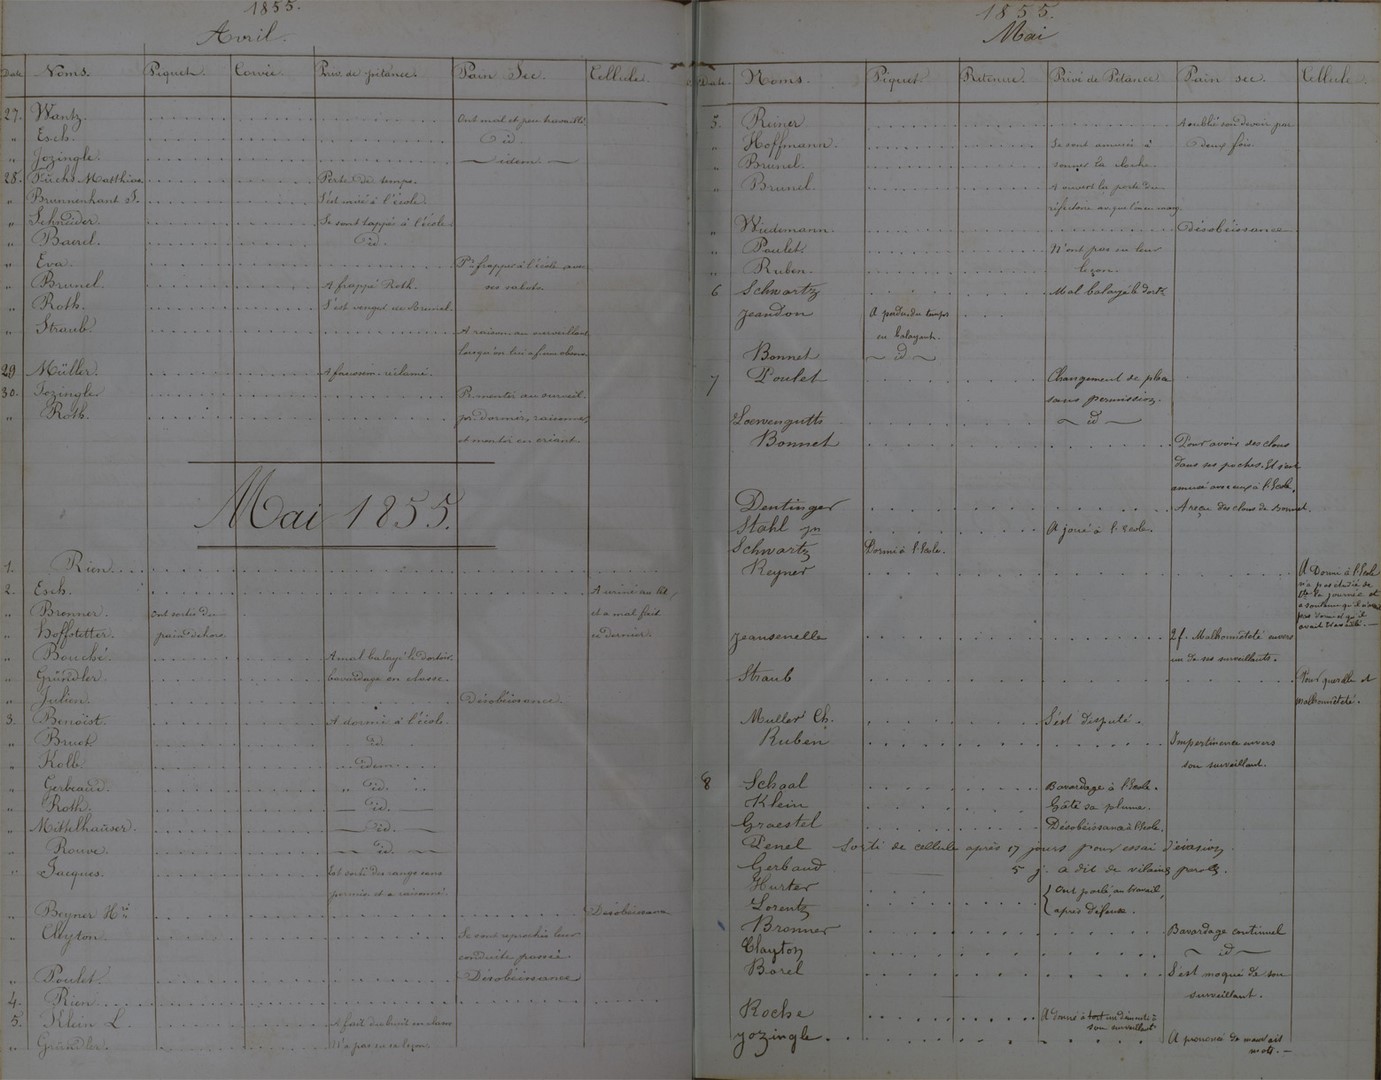 1855.
Avril.
Date Noms. Piquet. Corvée. Privé de pitance. Pain Sec. Cellule.
27. Wantz. Ont mal et peu travaillé
" Esch. id
" Jozingle. idem
28. Fuchs Matthias. Perte de temps.
" Brunnenkant J. S'est à l'école.
" Schneider. Se sont tappés à l'école.
" Baerel. id.
" Eva. frapper à l'école avec
ses sabots
" Brunel. A frappé Roth.
" Roth. S'est vengé de Brunel.
" Straub. A raisonné au surveillant
lorsqu'on lui a fait
29 Müller. A faussem. réclamé.
30. Jozingle P. mentir au surveil.
" Roth. pr. dormir, raisonner,
et monter en criant
Mai 1855.
1. Rien.
2. Esch. A uriné au lit,
" Bronner. Ont sortis du et a mal fait
" Hoffstetter. pain dehors. ce dernier.
" Bouché. A mal balayé le dortoir.
" Gründler. bavardage en classe.
" Julien. Désobéissance.
3. Benoist. A dormi à l'école.
" Bruck id.
" Kolb. idem.
" Gerbeaud. " id.
" Roth. id.
" Mittelhauser. id.
" Rouve. id.
" Jacques. Est sorti des rangs sans
permis. et a raisonné.
" Beyner Hri Désobéissance
" Cleyton. Se sont reprochés leur
conduite passée.
" Poulet. Désobéissance
4. Rien.
5. Klein L. A fait du bruit en classe
" Gründler. N'a pas su sa leçon.
1855.
Mai
Date. Noms. Piquet. Retenue. Privé de Pitance Pain sec. Cellule.
5. Reiner A oublié son devoir par
" Hoffmann. Se sont amusés à deux fois.
" Brunel. sonner la cloche.
" Brunel. A ouvert la porte du
réfectoire
" Wiedemann. Désobéissance
" Poulet. N'ont pas su leur
" Ruben. leçon.
6 Schwartz Mal balayé le dort.
Jeandon A perdu du temps
en balayant.
Bonnet id
7 Poulet Changement de place
sans permission.
Loewengutts id
Bonnet Pour avoir des clous
dans ses poches. Et s'est
amusé avec eux à l'Ecole.
Dentinger A reçu des clous de Bonnet.
Stahl jn A joué à l'Ecole.
Schwartz Dormi à l'Ecole.
Reyner A Dormi à l'Ecole
n'a pas étudié de
tte la journée et
a soutenu qu'il n'avait
pas dormi et qu'il
avait travaillé. —
Jeansenelle 2 f. Malhonnêteté envers
un de ses surveillants.
Straub Pour querelle et
malhonnêteté.
Muller Ch. S'est disputé.
Ruben Impertinence envers
son surveillant.
8 Schaal Bavardage à l'Ecole.
Klein Gâté sa plume.
Graestel Désobéissance à l'Ecole.
Penel Sorti de cellule après 17 jours pour essai d'évasion
Gerbaud 5 j. a dit de vilains parole
Hurter Ont parlé, au travail,
Lorentz après défense.
Bronner Bavardage continuel
Clayton id
Borel S'est moqué de son
surveillant.
Roche A donné à tort un démenti à
son surveillant
Jozingle. A prononcé de mauvais
mots. —